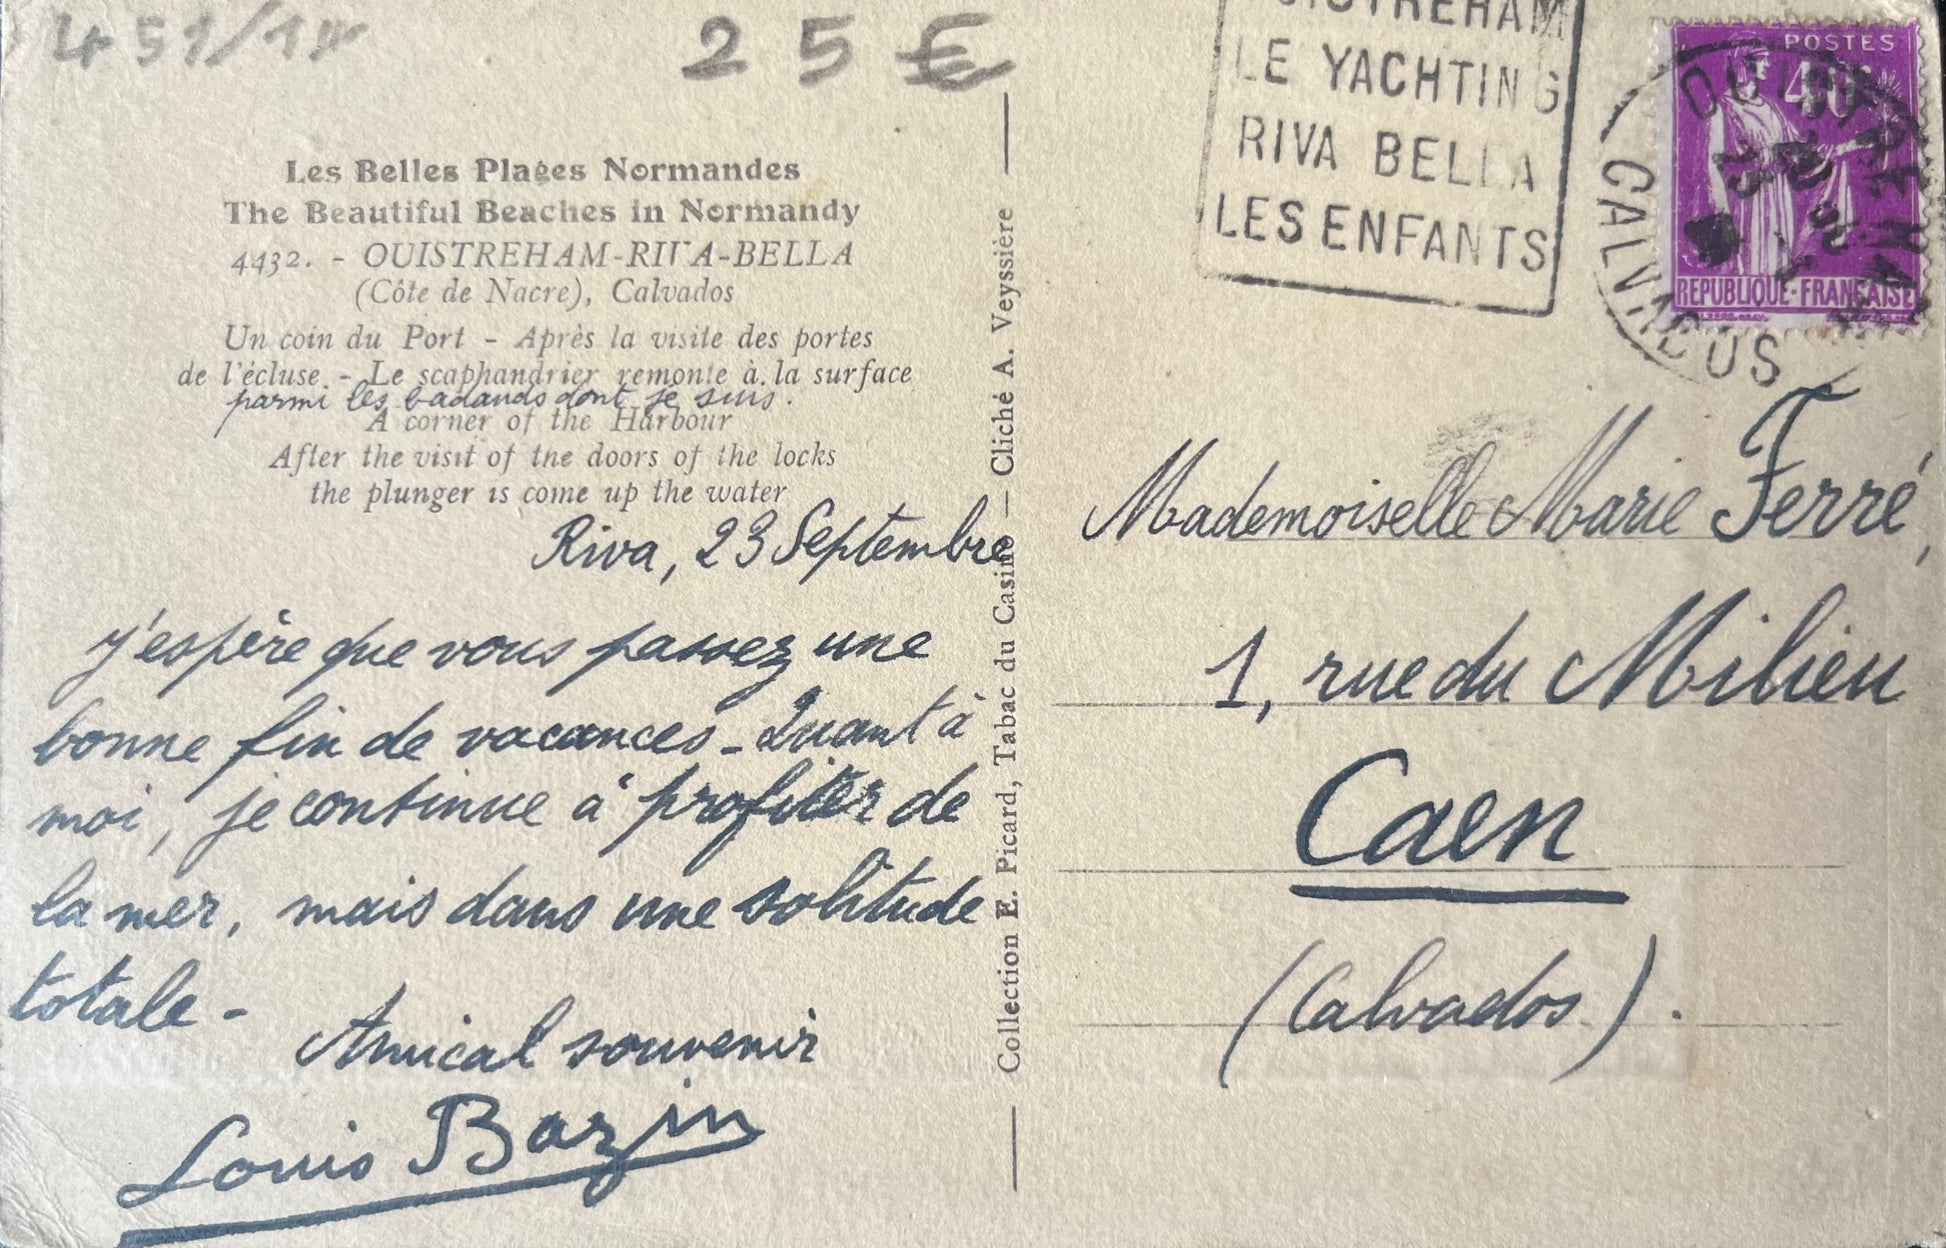 451/14
25 €
Les Belles Plages Normandes
The Beautiful Beaches in Normandy
4432. - OUISTREHAM-RIVA-BELLA
(Côte de Nacre), Calvados
Un coin du Port - Après la visite des portes
de l'écluse. - Le scaphandrier remonte à la surface
parmi les badauds dont je suis.
A corner of the Harbour
After the visit of the doors of the locks
the plunger is come up the water
Riva, 23 Septembre
J'espère que vous passez une
bonne fin de vacances - Quant à
moi, je continue à profiter de
la mer, mais dans une solitude
totale -
Amical souvenir
Louis Bazin
Collection E. Picard, Tabac du Casino — Cliché A. Veyssière
OUISTREHAM
LE YACHTING
RIVA BELLA
LES ENFANTS
OUISTREHAM
CALVADOS
POSTES
40c
REPUBLIQUE·FRANÇAISE
Mademoiselle Marie Ferré,
1, rue du Milieu
Caen
(Calvados).